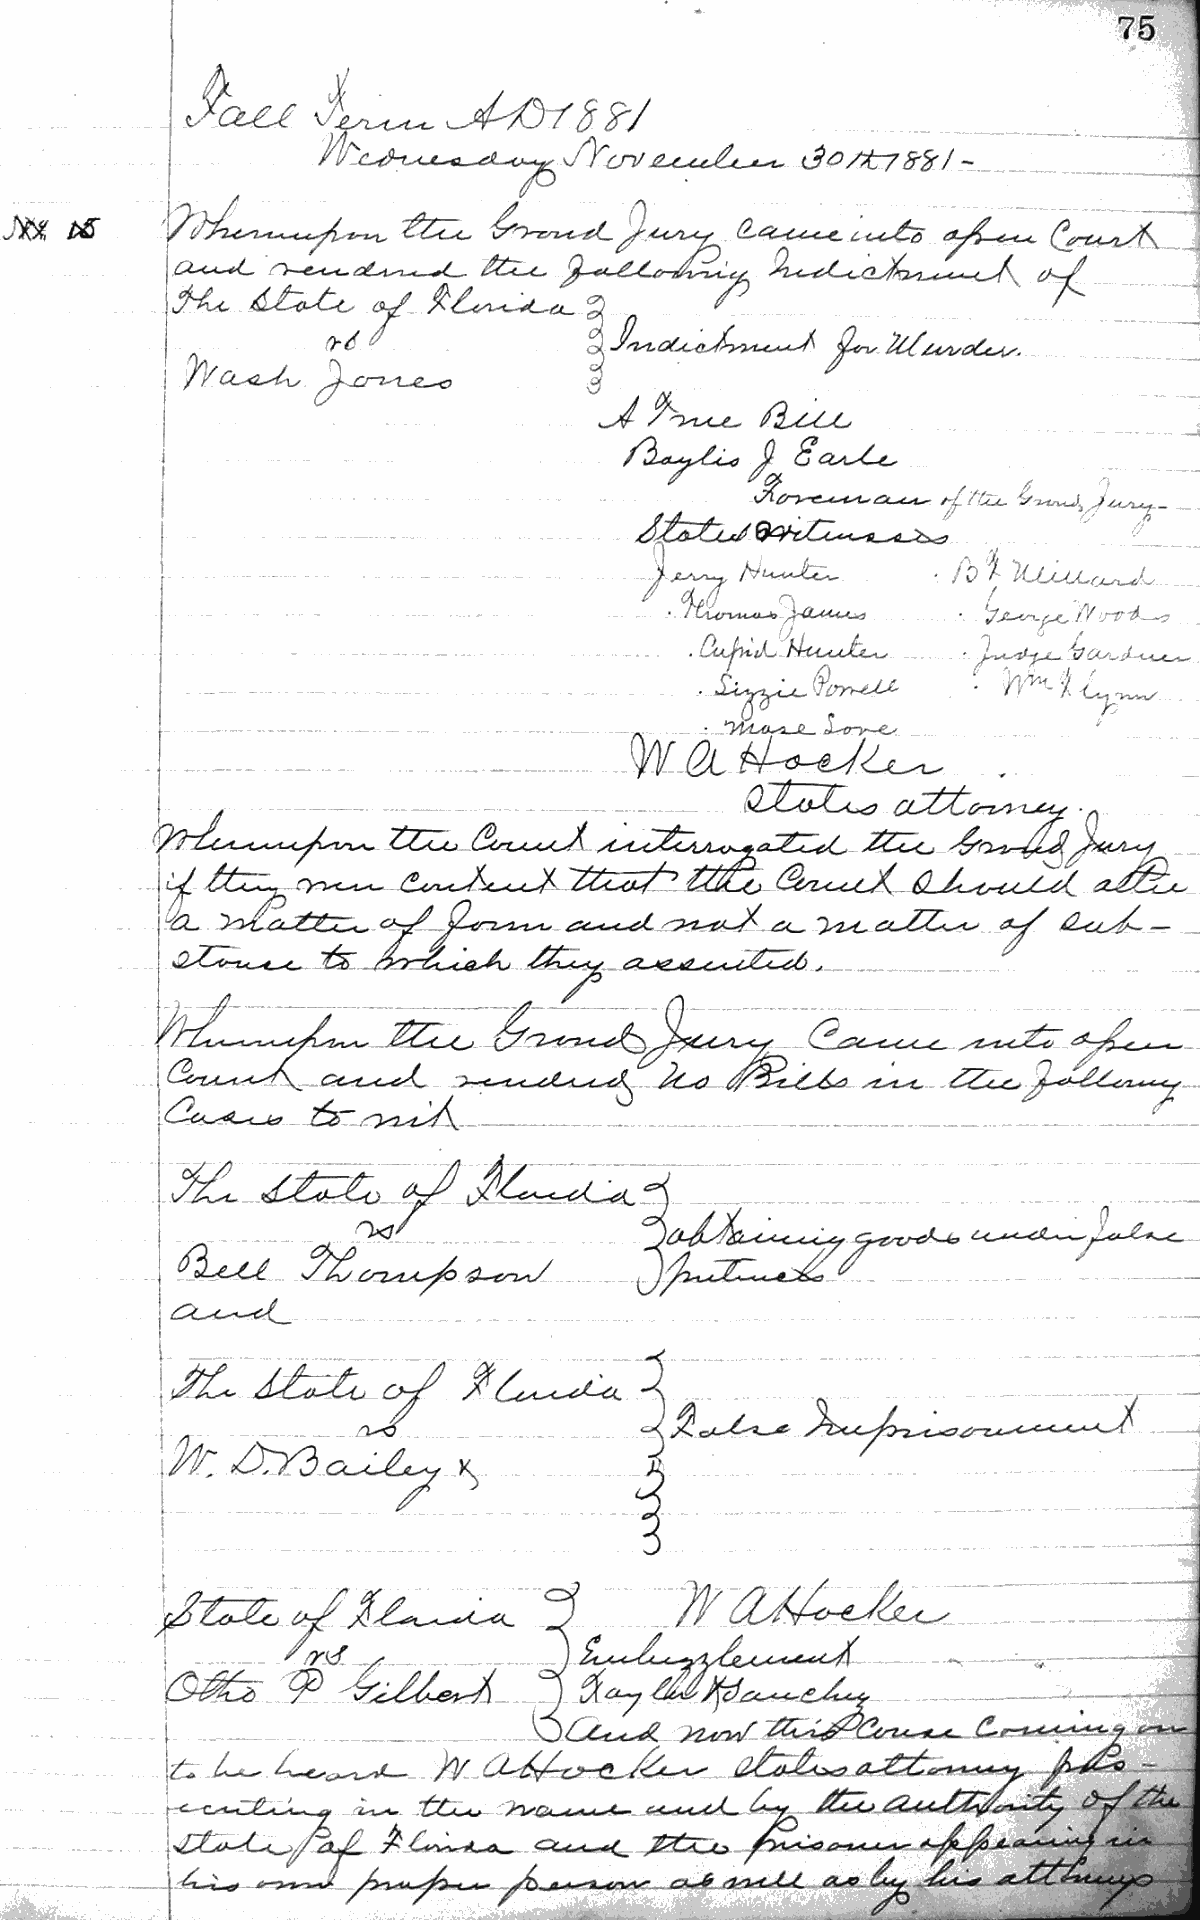 75
Fall Term AD 1881
Wednesday November 30th 1881-
Whereupon the Grand Jury came into open Court
and rendered the following Indictment of
The State of Florida
vs
Indictment for Murder.
Wash Jones
A True Bill
Baylis J Earle
Foreman of the Grand Jury-
States witnesses
Jerry Hunter . B F Millard
. Thomas James . George Woods
. Cupid Hunter . Judge Gardner
. Lizzie Powell . Wm Flynn
. Mose Love
W A Hocker
States attorney.
Whereupon the Court interrogated the Grand Jury
if they were content that the Court should alter
a matter of form and not a matter of sub-
stance to which they assented.
Whereupon the Grand Jury Came into open
Court and rendered no Bills in the following
Cases to wit
The State of Florida
vs
obtaining goods under false
Bell Thompson pretences
and
The State of Florida
vs
False Imprisonment
W. D. Bailey
State of Florida W A Hocker
vs Embezzlement
Otho P Gilbert Sanchez
And now this Cause Coming on
to be heard W A Hocker states attorney pros-
ecuting in the name and by the authority of the
State of Florida and the prisoner appearing in
his own proper person as well as by his attorneys